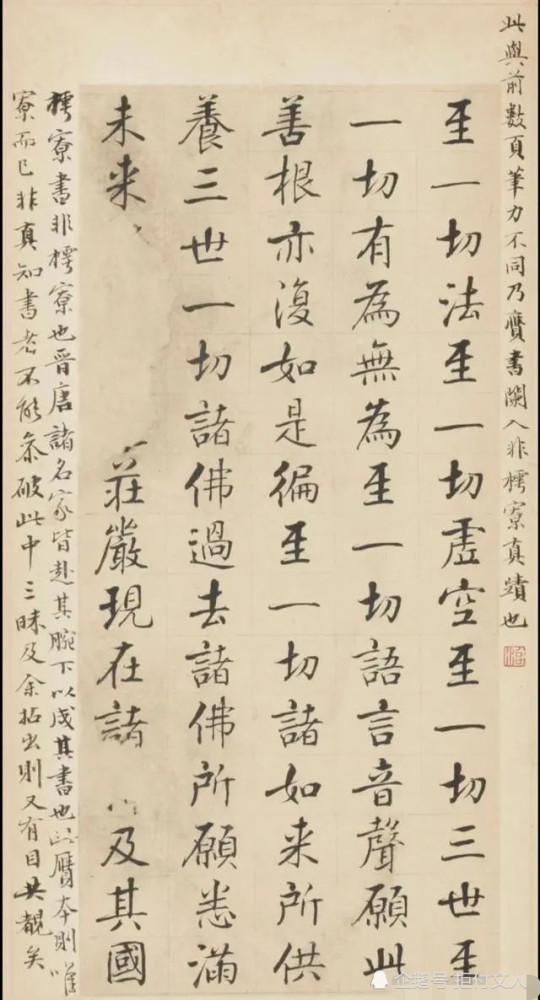 此與前數頁筆力不同乃贋書闌入非樗寮真蹟也
至一切法至一切虛空至一切三世至
一切有為無為至一切語言音聲願此
善根亦復如是徧至一切諸如来所供
養三世一切諸佛過去諸佛所願悉滿
未来 莊嚴現在諸 及其國
樗寮書非樗寮也晋唐諸名家皆赴其腕下以成其書也此贋本則唯
寮而已非真知書者不能叅破此中三昧及余拈出則又有目共覩矣
文人